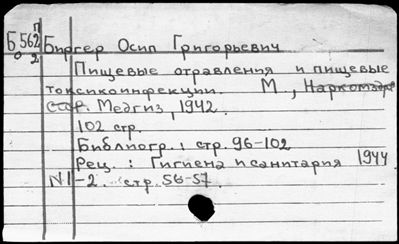 П
Б 562 Биргер Осип Григорьевич
0 2
Пищевые отравления и пищевые
токсикоинфекции. М., Наркомздрав
ссср. Медгиз, 1942.
102 стр.
Библиогр.: стр. 96-102
Рец.: Гигиена и санитария 1944
N1-2. стр. 56-57.